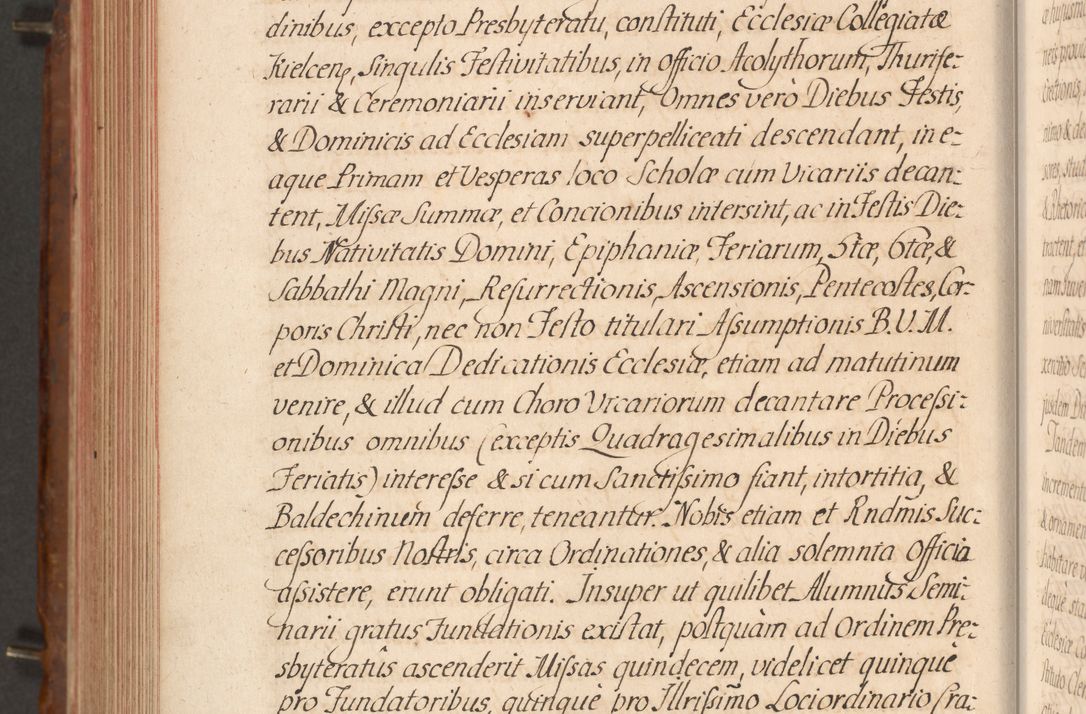 dinibus, excepto Presbyteratu, constituti, Ecclesiæ Collegiatæ
Kielcen, Singulis Festivitatibus, in officio Acolythorum, Thurife-
rarii & Ceremoniarii inserviant, Omnes verò Diebus Festis,
& Dominicis ad Ecclesiam superpelliceati descendant, in e-
aque Primam et Vesperas loco Scholæ cum Vicariis decan-
tent, Missæ Summæ, et Concionibus intersint, ac in Festis Die-
bus Nativitatis Domini, Epiphaniæ, Feriarum, 5tæ, 6tæ, &
Sabbathi Magni, Resurrectionis, Ascensionis, Pentecostes, Cor-
poris Christi, nec non Festo titulari Assumptionis B. V. M.
et Dominica Dedicationis Ecclesiæ, etiam ad matutinum
venire, & illud cum Choro Vicariorum decantare Processi-
onibus omnibus (exceptis Quadragesimalibus in Diebus
Feriatis) interesse & si cum Sanctissimo fiant, intortitia, &
Baldechinum deferre, teneantur. Nobis etiam et Rndmis Suc-
cessoribus Nostris, circa Ordinationes, & alia solemnia Officia
assistere, erunt obligati. Insuper ut quilibet Alumnus Semi-
narii gratus Fundationis existat, postquàm ad Ordinem Pre-
sbyteratûs ascenderit Missas quindecem, videlicet quinquè
pro Fundatoribus, quinquè pro Illrissimo Lociordinario Cra-